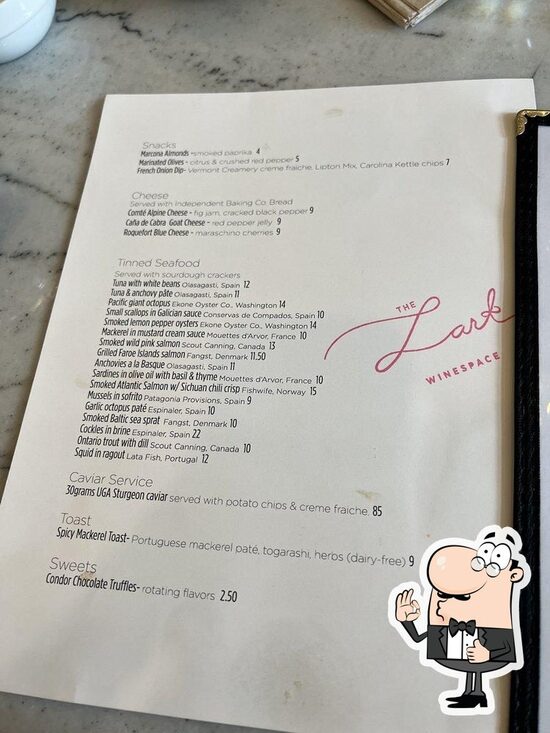 Snacks
Marcona Almonds -smoked paprika 4
Marinated Olives - citrus & crushed red pepper 5
French Onion Dip- Vermont Creamery creme fraiche, Lipton Mix, Carolina Kettle chips 7
Cheese
Served with Independent Baking Co. Bread
Comté Alpine Cheese - fig jam, cracked black pepper 9
Caña de Cabra Goat Cheese - red pepper jelly 9
Roquefort Blue Cheese - maraschino cherries 9
Tinned Seafood
Served with sourdough crackers
Tuna with white beans Olasagasti, Spain 12
Tuna & anchovy pâte Olasagasti, Spain 11
Pacific giant octopus Ekone Oyster Co., Washington 14
Small scallops in Galician sauce Conservas de Compados, Spain 10
Smoked lemon pepper oysters Ekone Oyster Co., Washington 14
Mackerel in mustard cream sauce Mouettes d'Arvor, France 10
Smoked wild pink salmon Scout Canning, Canada 13
Grilled Faroe Islands salmon Fangst, Denmark 11.50
Anchovies a la Basque Olasagasti, Spain 11
Sardines in olive oil with basil & thyme Mouettes d'Arvor, France 10
Smoked Atlantic Salmon w/ Sichuan chili crisp Fishwife, Norway 15
Mussels in sofrito Patagonia Provisions, Spain 9
Garlic octopus paté Espinaler, Spain 10
Smoked Baltic sea sprat Fangst, Denmark 10
Cockles in brine Espinaler, Spain 22
Ontario trout with dill Scout Canning, Canada 10
Squid in ragout Lata Fish, Portugal 12
Caviar Service
30grams UGA Sturgeon caviar served with potato chips & creme fraiche. 85
Toast
Spicy Mackerel Toast- Portuguese mackerel paté, togarashi, herbs (dairy-free) 9
Sweets
Condor Chocolate Truffles- rotating flavors 2.50
THE
Lark
WINESPACE